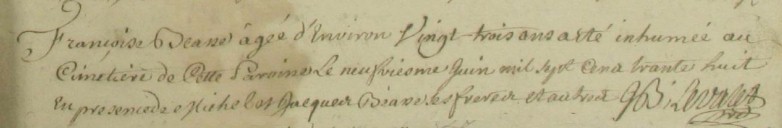 Françoise Beave âgeé d'Environ Vingt-trois ans a eté inhumeé au
Cimetière de Cette Paroisse Le neufviesme Juin mil sept Cens trante huit
En presence de Michel et Jacques Beave ses freres et autres